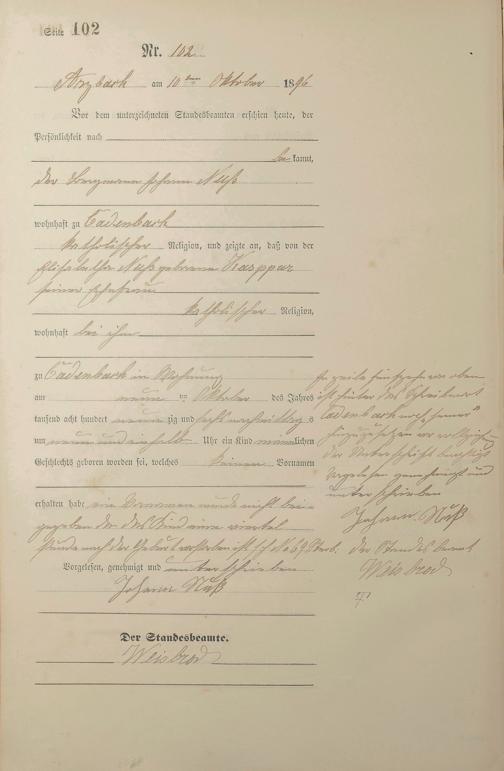 Seite 102
Nr. 102
Arzbach am 10ten Oktober 1896
Vor dem unterzeichneten Standesbeamten erschien heute, der
Persönlichkeit nach
be kannt,
der Bergmann Johann Nuß
wohnhaft zu Cadenbach
katholischer Religion, und zeigte an, daß von der
Elisabetha Nuß geborene Kasppar
seiner Ehefrau
katholischer Religion,
wohnhaft bei ihm
zu Cadenbach in Wohnung
am neun ten Oktober des Jahres
tausend acht hundert neun zig und sechs nachmittags
um neun und einhalb Uhr ein Kind männlichen
Geschlechts geboren worden sei, welches keinen Vornamen
erhalten habe ein Vornamen wurde nicht bei-
gegeben da das Kind eine viertel
Stunde nach der Geburt verstorben ist No 69 Sterb.
Vorgelesen, genehmigt und unterschrieben
Johann Nuß
Der Standesbeamte.
Weisbrod
Zeile fünfzehn von oben
ist hinter
Cadenbach noch "seiner"
hinzuzusetzen vor
der Unterschrift
Vorgelesen genehmigt und
unterschrieben
Johann Nuß
der Standesbeamte
Weisbrod